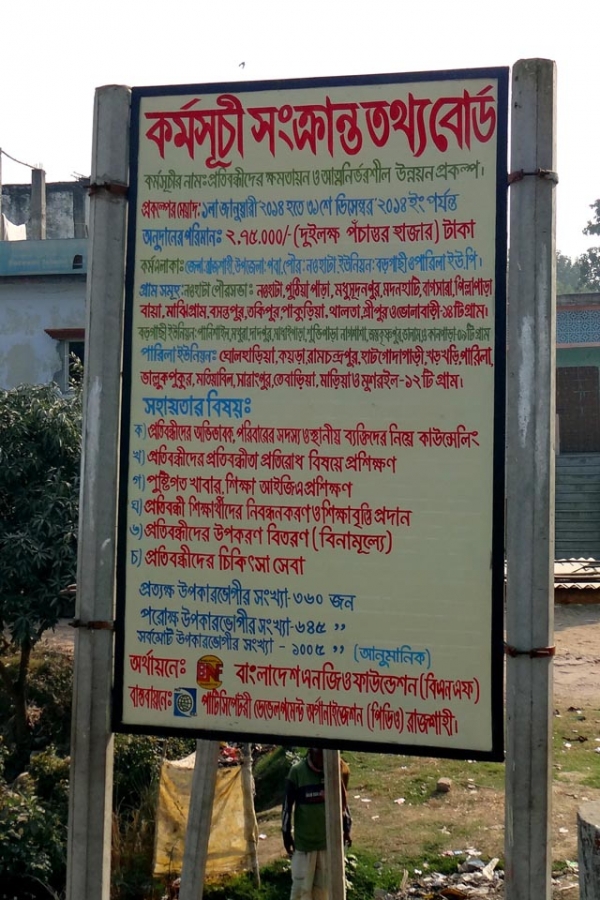 কর্মসূচী সংক্রান্ত তথ্য বোর্ড
কর্মসূচীর নাম: প্রতিবন্ধীদের ক্ষমতায়ন ও আত্মনির্ভরশীল উন্নয়ন প্রকল্প।
প্রকল্পের মেয়াদ: ১লা জানুয়ারী ২০১৪ হতে ৩১শে ডিসেম্বর ২০১৪ ইং পর্যন্ত
অনুদানের পরিমান: ২,৭৫,০০০/- (দুইলক্ষ পঁচাত্তর হাজার) টাকা
কর্মএলাকা: জেলা: রাজশাহী, উপজেলা: পবা, পৌর: নওহাটা, ইউনিয়ন: বড়গাছী ও পারিলা ইউ.পি।
গ্রাম সমূহ: নওহাটা পৌরসভা: নওহাটা, পুঠিয়া পাড়া, মধুসূদনপুর, মদনহাটি, বাগসারা, পিল্লাপাড়া
বায়া, মাঝিগ্রাম, বসন্তপুর, তকিপুর, পাকুড়িয়া, থালতা, শ্রীপুর ও ভোলাবাড়ী-১৪টি গ্রাম।
বড়গাছী ইউনিয়ন: কানপাড়া-০৯টি গ্রাম
পারিলা ইউনিয়ন: ঘোলহাড়িয়া, কয়ড়া, রামচন্দ্রপুর, হাটগোদাগাড়ী, খড়খড়ি, পারিলা,
ভালুকপুকুর, মতিয়াবিল, সারাংপুর, তেবাড়িয়া, মাড়িয়া ও মুশরইল-১২টি গ্রাম।
সহায়তার বিষয়:
ক) প্রতিবন্ধীদের অভিভাবক, পরিবারের সদস্য ও স্থানীয় ব্যক্তিদের নিয়ে কাউন্সেলিং
খ) প্রতিবন্ধীদের প্রতিবন্ধীতা প্রতিরোধ বিষয়ে প্রশিক্ষণ
গ) পুষ্টিগত খাবার, শিক্ষা আইজিএ প্রশিক্ষণ
ঘ) প্রতিবন্ধী শিক্ষার্থীদের নিবন্ধনকরণ ও শিক্ষাবৃত্তি প্রদান
ঙ) প্রতিবন্ধীদের উপকরণ বিতরণ (বিনামূল্যে)
চ) প্রতিবন্ধীদের চিকিৎসা সেবা
প্রত্যক্ষ উপকারভোগীর সংখ্যা-৩৬০ জন
পরোক্ষ উপকারভোগীর সংখ্যা-৬৪৫ ,,
সর্বমোট উপকারভোগীর সংখ্যা - ১০০৫ ,, (আনুমানিক)
অর্থায়নে: BNF বাংলাদেশ এনজিও ফাউন্ডেশন (বিএনএফ)
বাস্তবায়নে: পার্টিসিপেটরী ডেভেলপমেন্ট অর্গানাইজেশন (পিডিও) রাজশাহী।